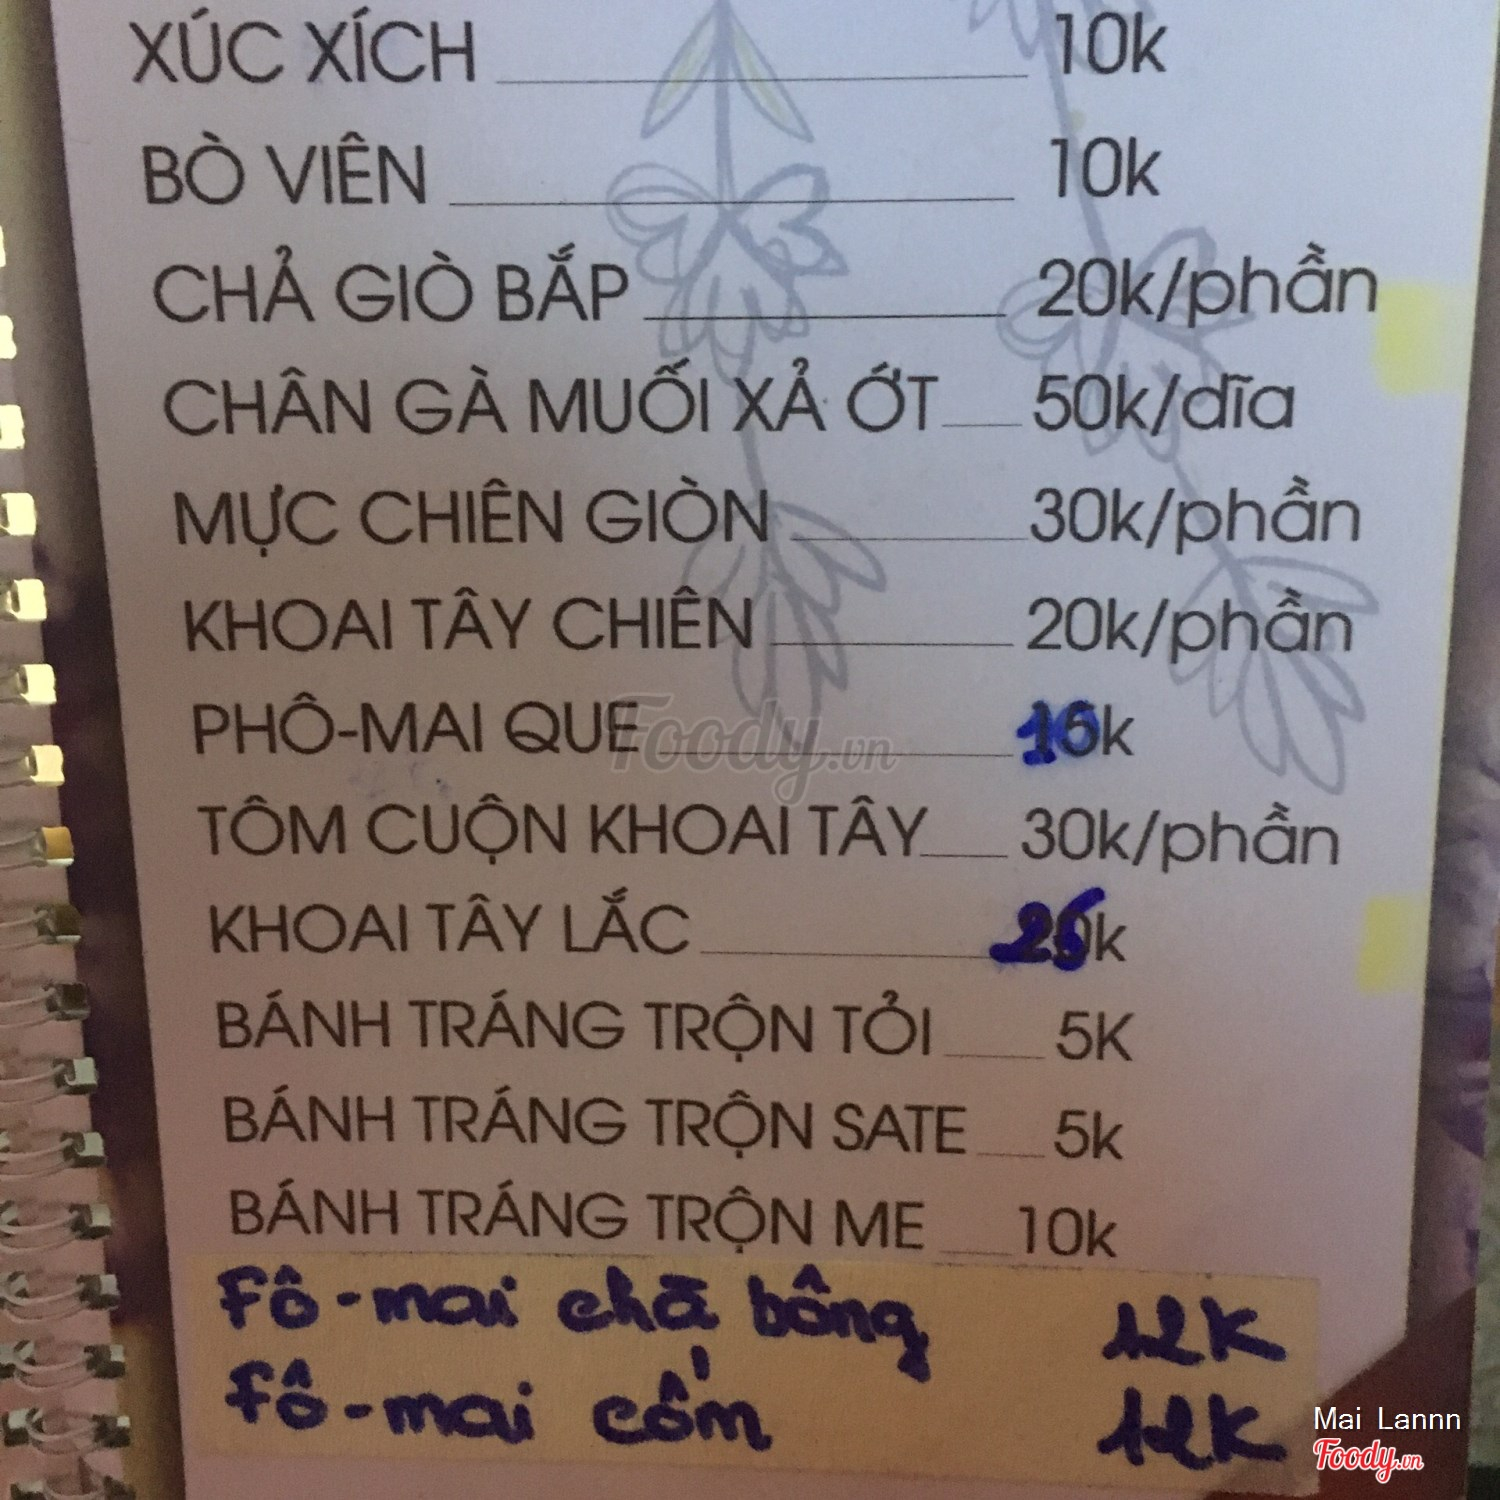 XÚC XÍCH 10k
BÒ VIÊN 10k
CHẢ GIÒ BẮP 20k/phần
CHÂN GÀ MUỐI XẢ ỚT 50k/dĩa
MỰC CHIÊN GIÒN 30k/phần
KHOAI TÂY CHIÊN 20k/phần
PHÔ-MAI QUE k
Foody.vn
TÔM CUỘN KHOAI TÂY 30k/phần
KHOAI TÂY LẮC 25k
BÁNH TRÁNG TRỘN TỎI 5K
BÁNH TRÁNG TRỘN SATE 5k
BÁNH TRÁNG TRỘN ME 10k
Fô-mai chà bông 12K
Fô-mai cốm 12K
Mai Lannn
Foody.vn